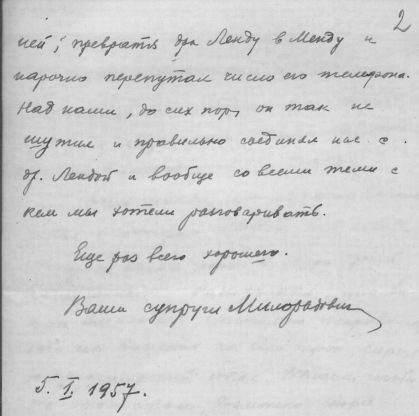 2
ней; превратя дра Ленду в Менду и
нарочно перепутал число его телефона.
Над нами, до сих пор, он так не
шутил и правильно соединял нас с
др. Лендой и вообще со всеми теми с
кем мы хотели разговаривать.
Еще раз всего хорошего.
Ваши супруги Милорадович
5. I. 1957.